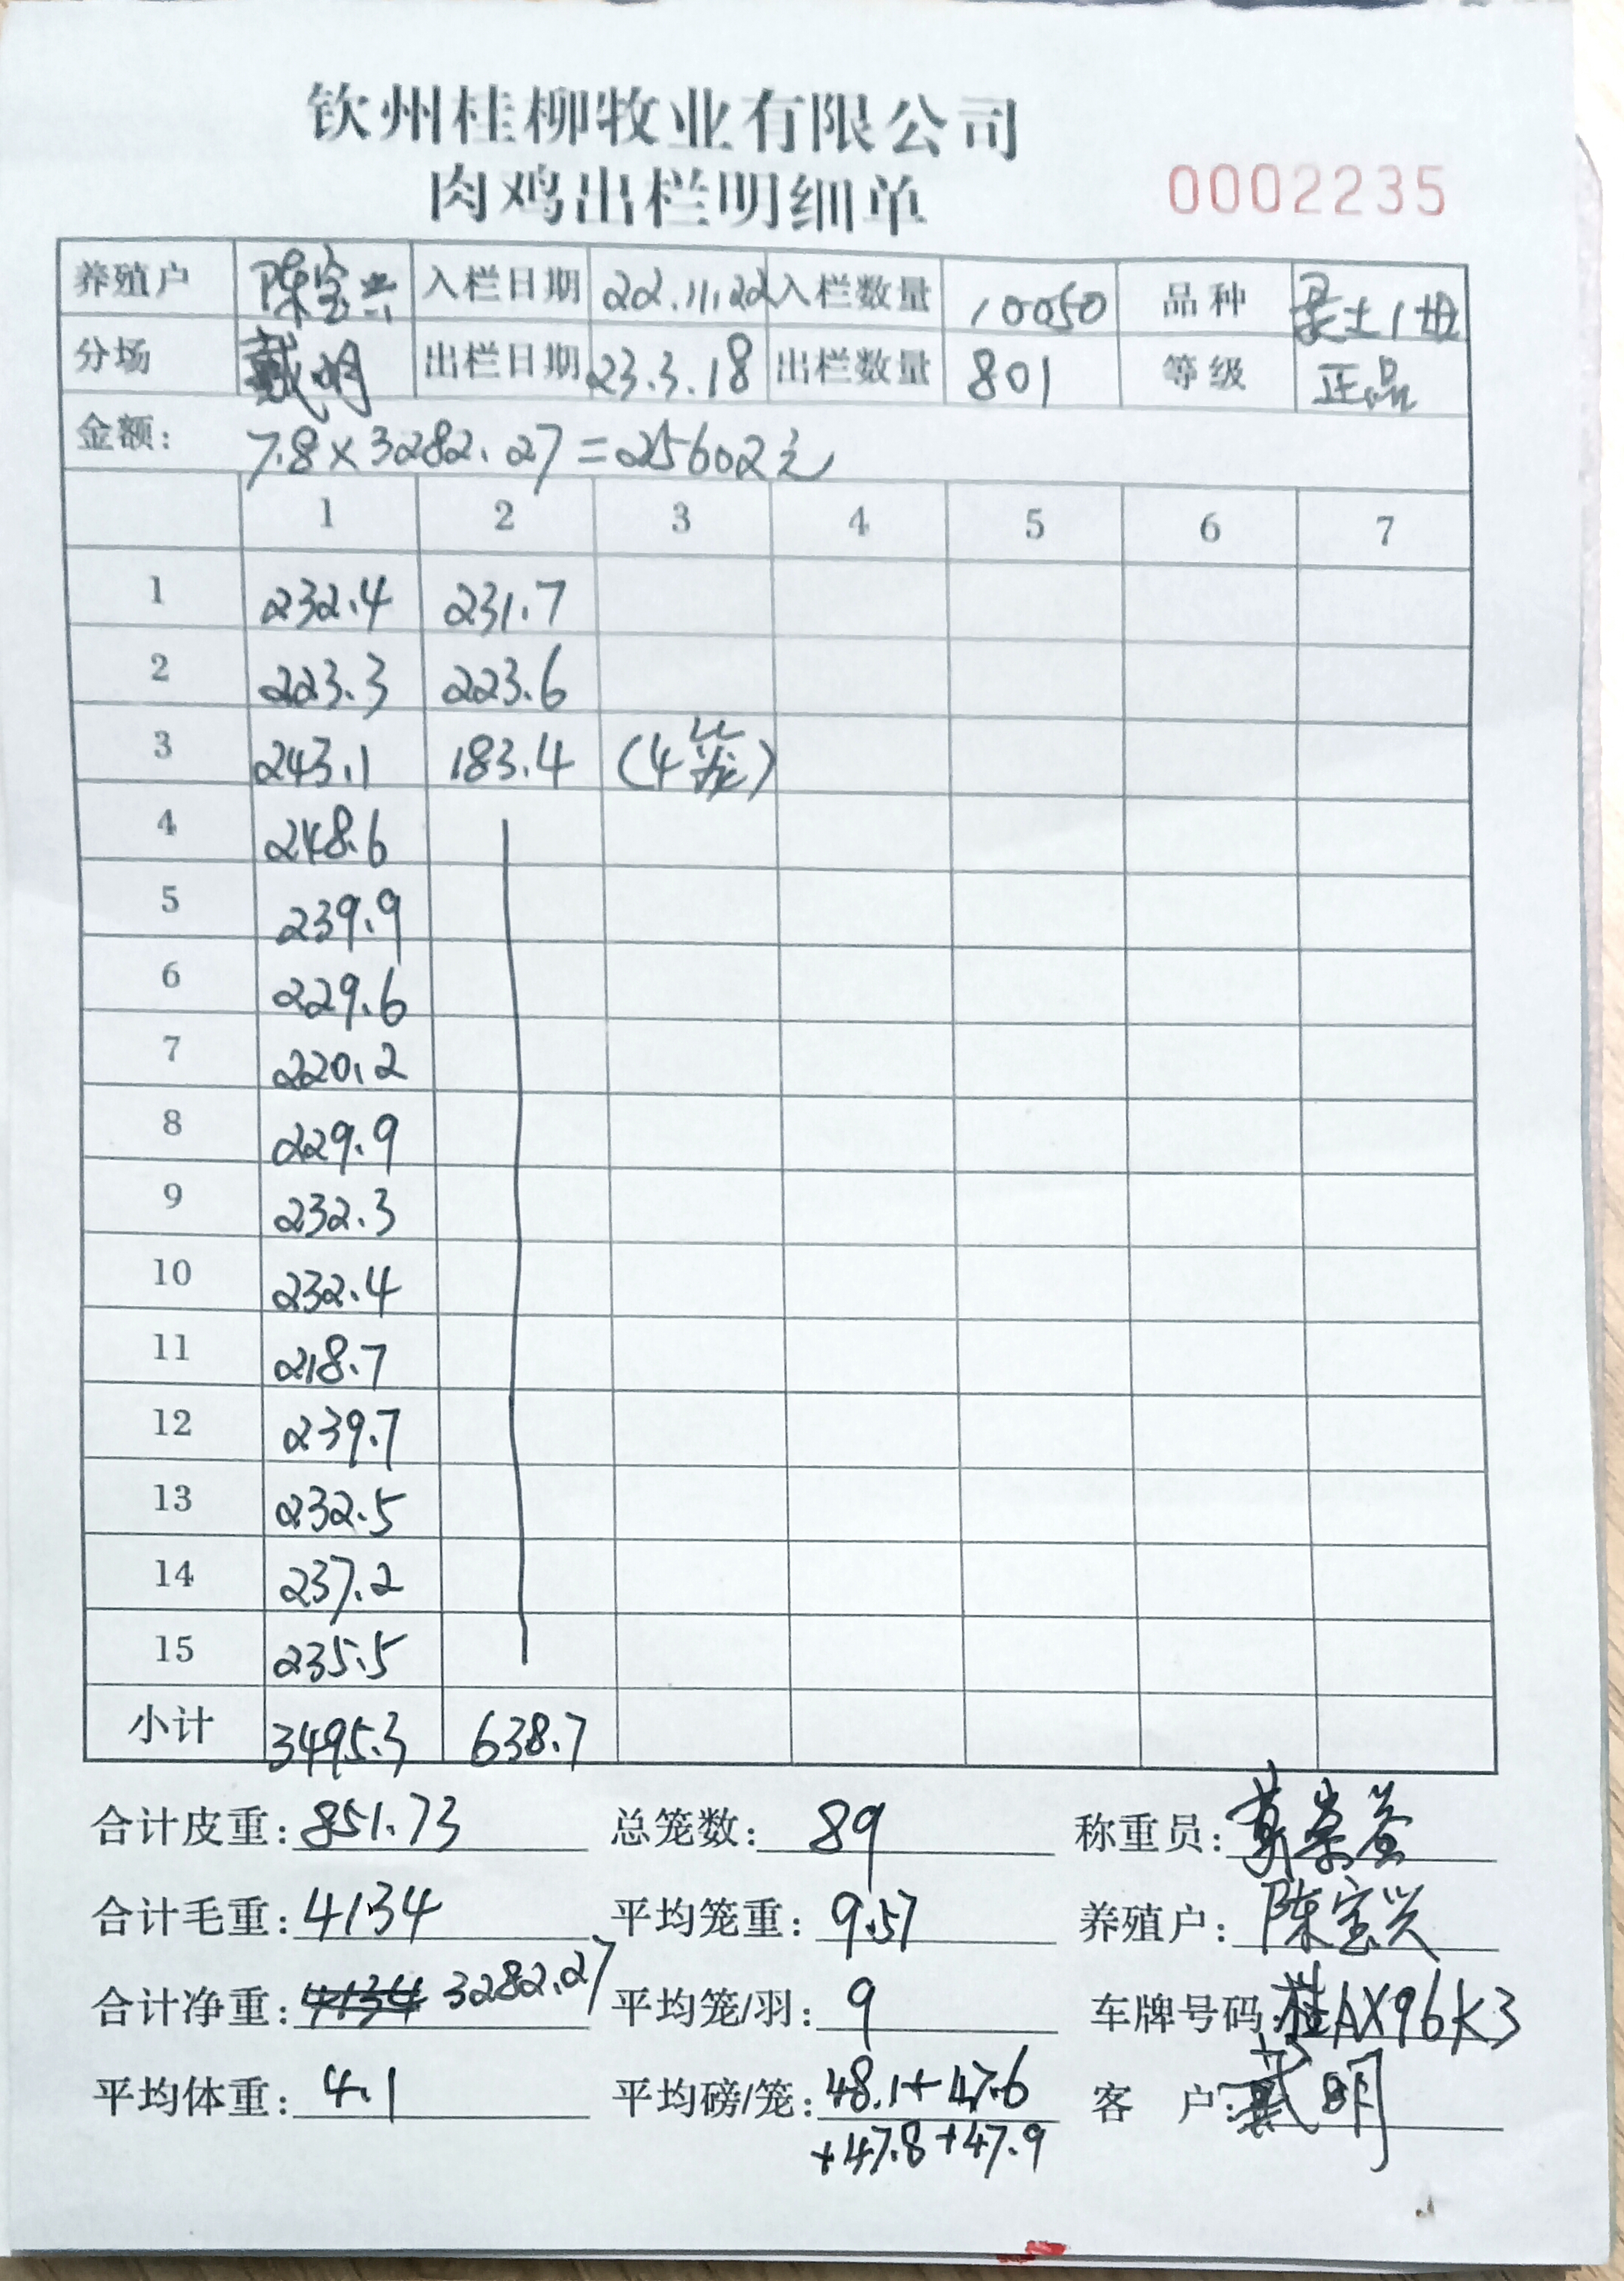 钦州桂柳牧业有限公司
肉鸡出栏明细单 0002235
养殖户 陈宝兴 入栏日期 22.11.22 入栏数量 10050 品种 土1母
分场 戴明 出栏日期 23.3.18 出栏数量 801 等级 正品
金额: 7.8×3282.27=25602元
1 2 3 4 5 6 7
1 232.4 231.7
2 223.3 223.6
3 243.1 183.4 (4笼)
4 248.6
5 239.9
6 229.6
7 220.2
8 229.9
9 232.3
10 232.4
11 218.7
12 239.7
13 232.5
14 237.2
15 235.5
小计 3495.3 638.7
合计皮重: 851.73 总笼数: 89 称重员:
合计毛重: 4134 平均笼重: 9.57 养殖户: 陈宝兴
合计净重: 4134 3282.27 平均笼/羽: 9 车牌号码: 桂AX96K3
平均体重: 4.1 平均磅/笼: 48.1+47.6 客 户: 戴明
+47.8+47.9